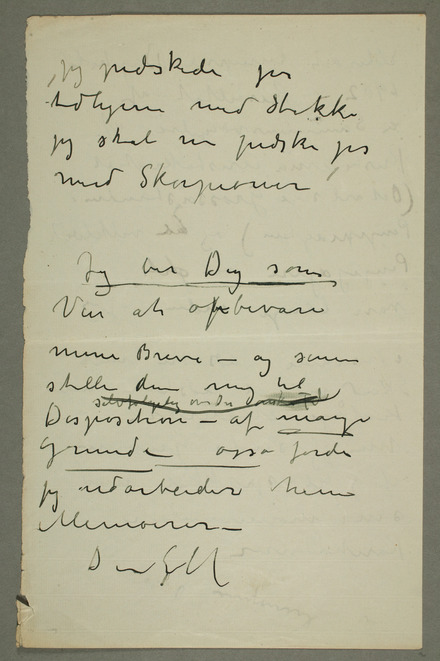 jeg pidskede jer
tidligere med Stokke
jeg skal nu pidske jer
med Skorpioner
Jeg ber Dig som
Ven at opbevare
mine Breve – og senere
stille dem mig til
Disposition – af mange
Grunde også fordi
jeg udarbeider
Memoirer –
Din EM